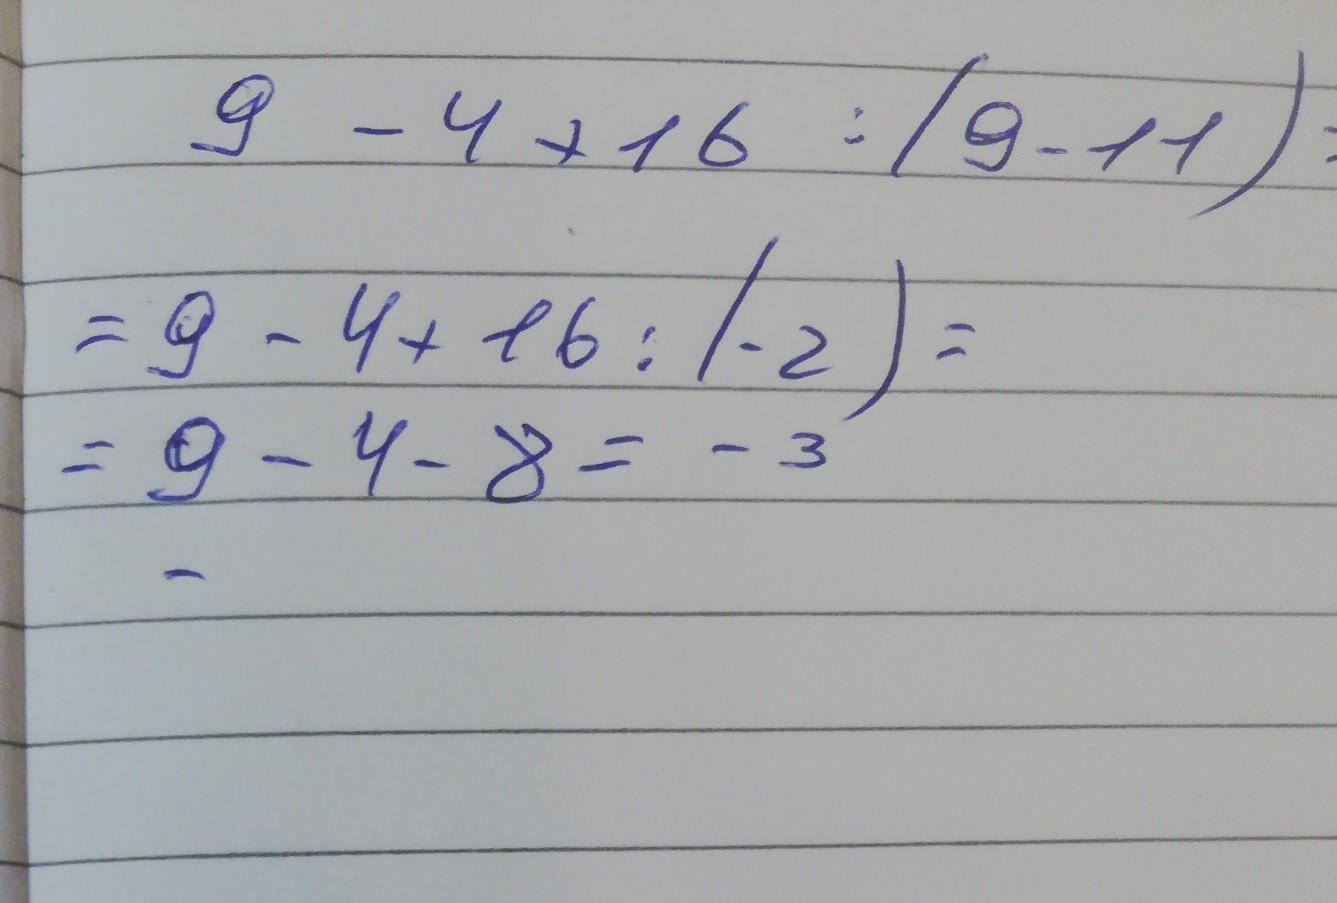 9 - 4 + 16 : (9 - 11) =
= 9 - 4 + 16 : (-2) =
= 9 - 4 - 8 = - 3
-